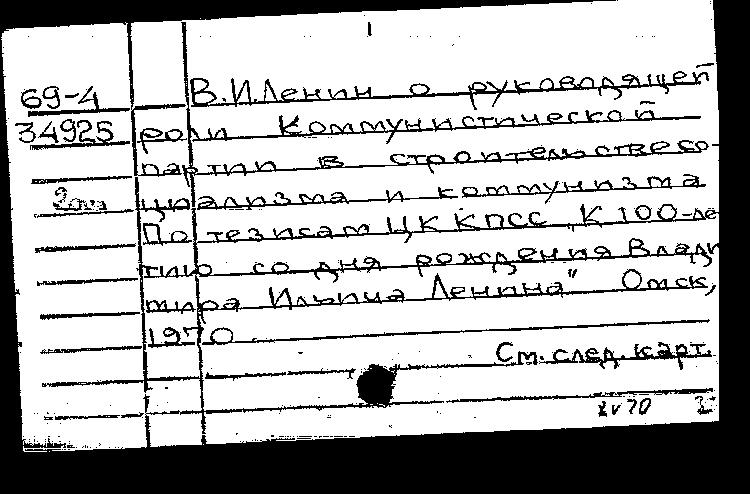 69-4 В.И.Ленин о руководящей
34925 роли Коммунистической
партии в строительстве со-
циализма и коммунизма
По тезисам ЦК КПСС „К 100-ле
тию со дня рождения Влади
мира Ильича Ленина" Омск,
1970
См. след. карт.